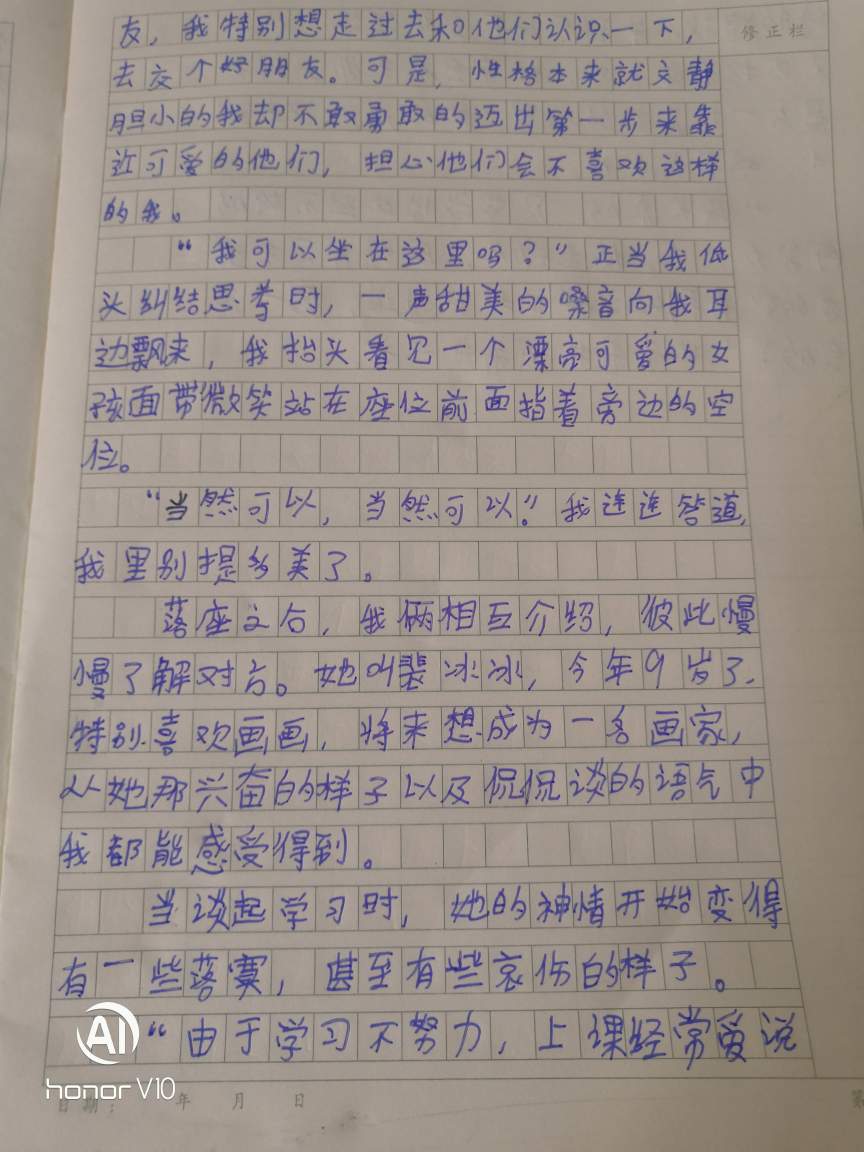 修正栏
友，我特别想走过去和他们认识一下，
去交个好朋友。可是，性格本来就文静
胆小的我却不敢勇敢的迈出第一步来靠
近可爱的他们，担心他们会不喜欢这样
的我。
“我可以坐在这里吗？”正当我低
头纠结思考时，一声甜美的嗓音向我耳
边飘来，我抬头看见一个漂亮可爱的女
孩面带微笑站在座位前面指着旁边的空
位。
“当然可以，当然可以。”我连连答道，
我里别提多美了。
落座之后，我俩相互介绍，彼此慢
慢了解对方。她叫裴冰冰，今年9岁了，
特别喜欢画画，将来想成为一名画家，
从她那兴奋的样子以及侃侃谈的语气中
我都能感受得到。
当谈起学习时，她的神情开始变得
有一些落寞，甚至有些哀伤的样子。
“由于学习不努力，上课经常爱说
日期： 年 月 日
第
AI
honor V10